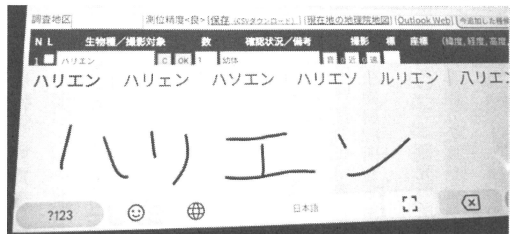 調査地区 測位精度<良> [保存 (CSVダウンロード)] [現在地の地理院地図] [Outlook Web] [今追加した種候
N L 生物種/撮影対象 数 確認状況/備考 撮影 標 座標 (緯度, 経度, 高度,
1 ハリエン C OK 1 幼体 音 近 遠
ハリエン ハリェン ハソエン ハリエソ ルリエン 八リエン
ハリエン
?123 日本語